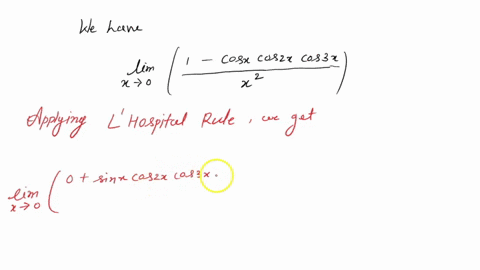 We have
lim x→0 ( 1 - cosx cos2x cos3x / x² )
Applying L'Hospital Rule, we get
lim x→0 ( 0 + sinx cos2x cos3x .